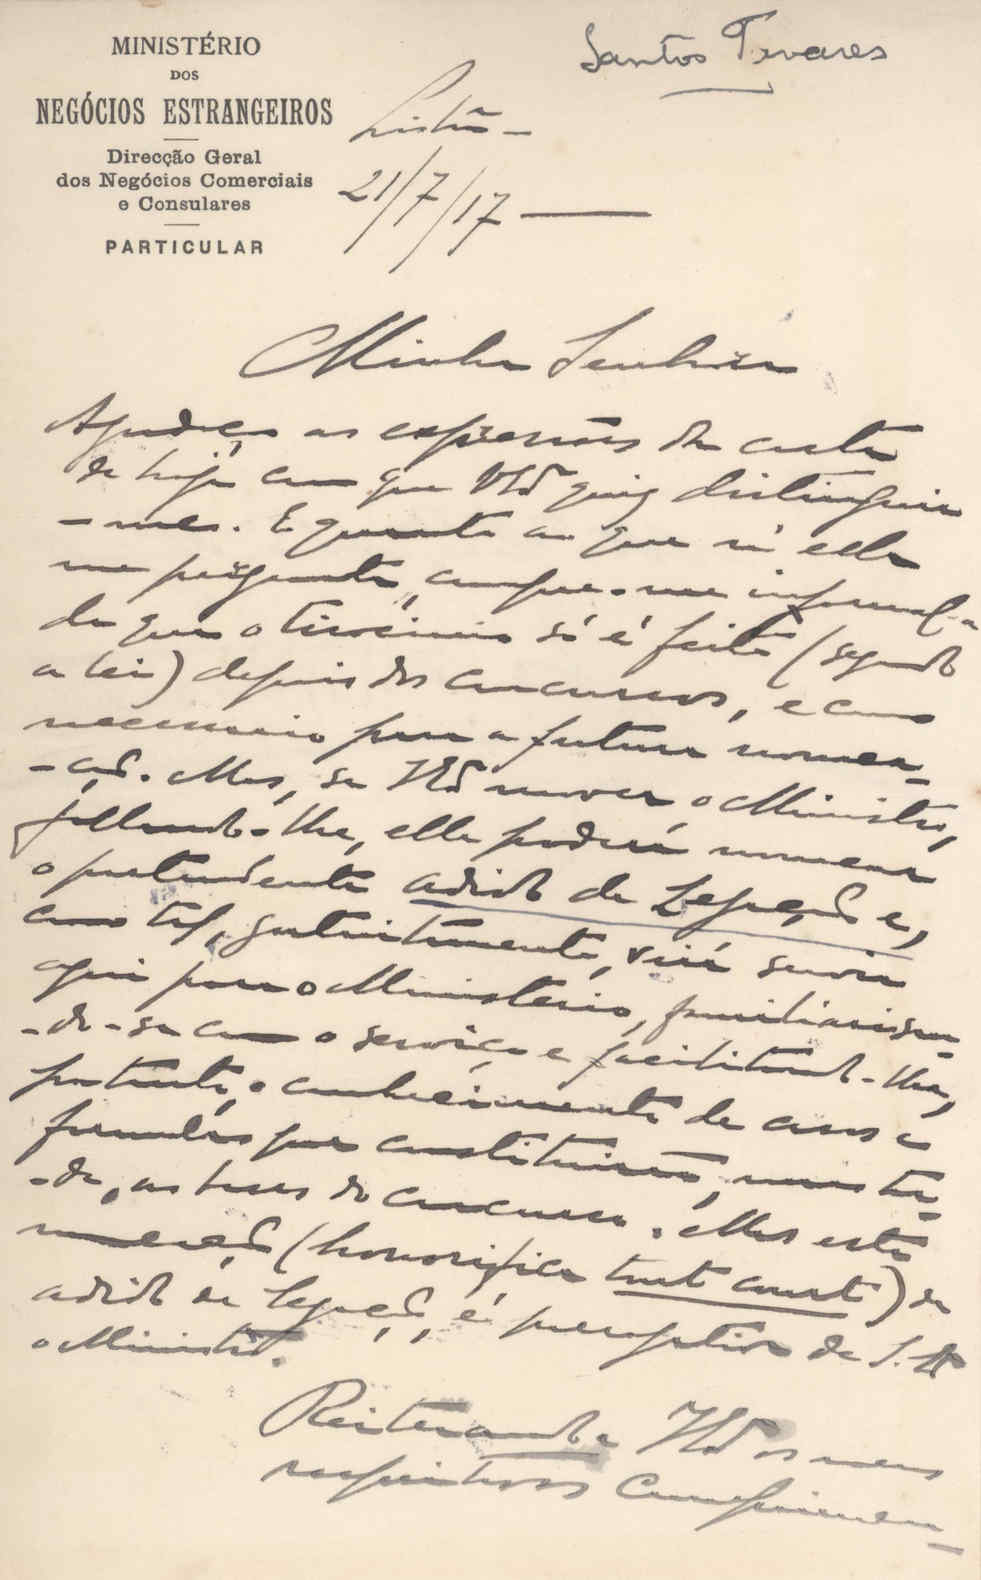 Santos Tavares
MINISTÉRIO
DOS
NEGÓCIOS ESTRANGEIROS
Direcção Geral
dos Negócios Comerciais
e Consulares
PARTICULAR
Lisbôa -
21/7/17 —
Minha Senhora
Agradeço as expressões da carta
de hoje com que quiz distinguir
-me. E quanto ao que n'ella
me pergunta, cumpre-me informal-a
de que o tirocinio só é feito (segundo
a lei) depois dos concursos, e como
necessario para a futura nomea-
-ção. Mas, se mover o Ministro,
fallando-lhe, elle poderá nomear
o pretendente adido de Legação e,
como tal, gratuitamente, virá servir
aqui para o Ministerio, familiarisan-
-do-se com o serviço e facilitando-lhe,
portanto, o conhecimento de casos e
formulas que constituirão, mais tar-
-de, as bases do concurso. Mas esta
nomeação (honorifica tout court) de
adido de Legação, é de S. Exª
o Ministro.
Reiterando a os meus
respeitosos cumprimen-